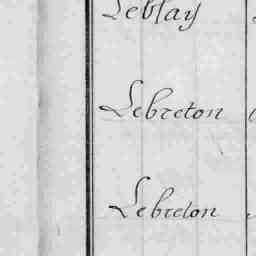 Leblay
Lebreton
Lebreton